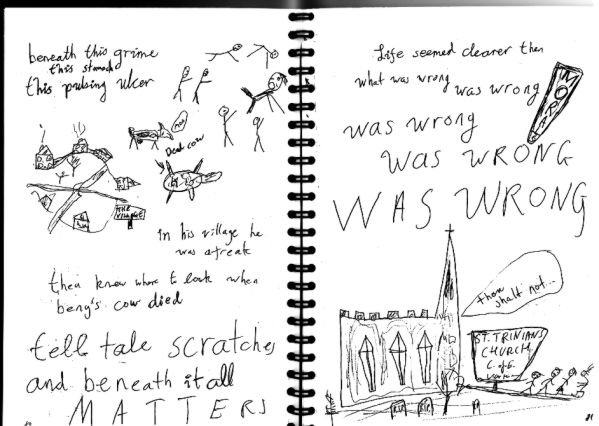 beneath this grime
this stomach
this pulsing ulcer
moo
Dead cow
THE VILLAGE
in his village he
was a freak
they knew where to look when
beny's cow died
tell tale scratches
and beneath it all
MATTERS
Life seemed clearer then
what was wrong was wrong
was wrong
was WRONG
WAS WRONG
thou
shalt not...
ST. TRINIANS
CHURCH
C. of E.